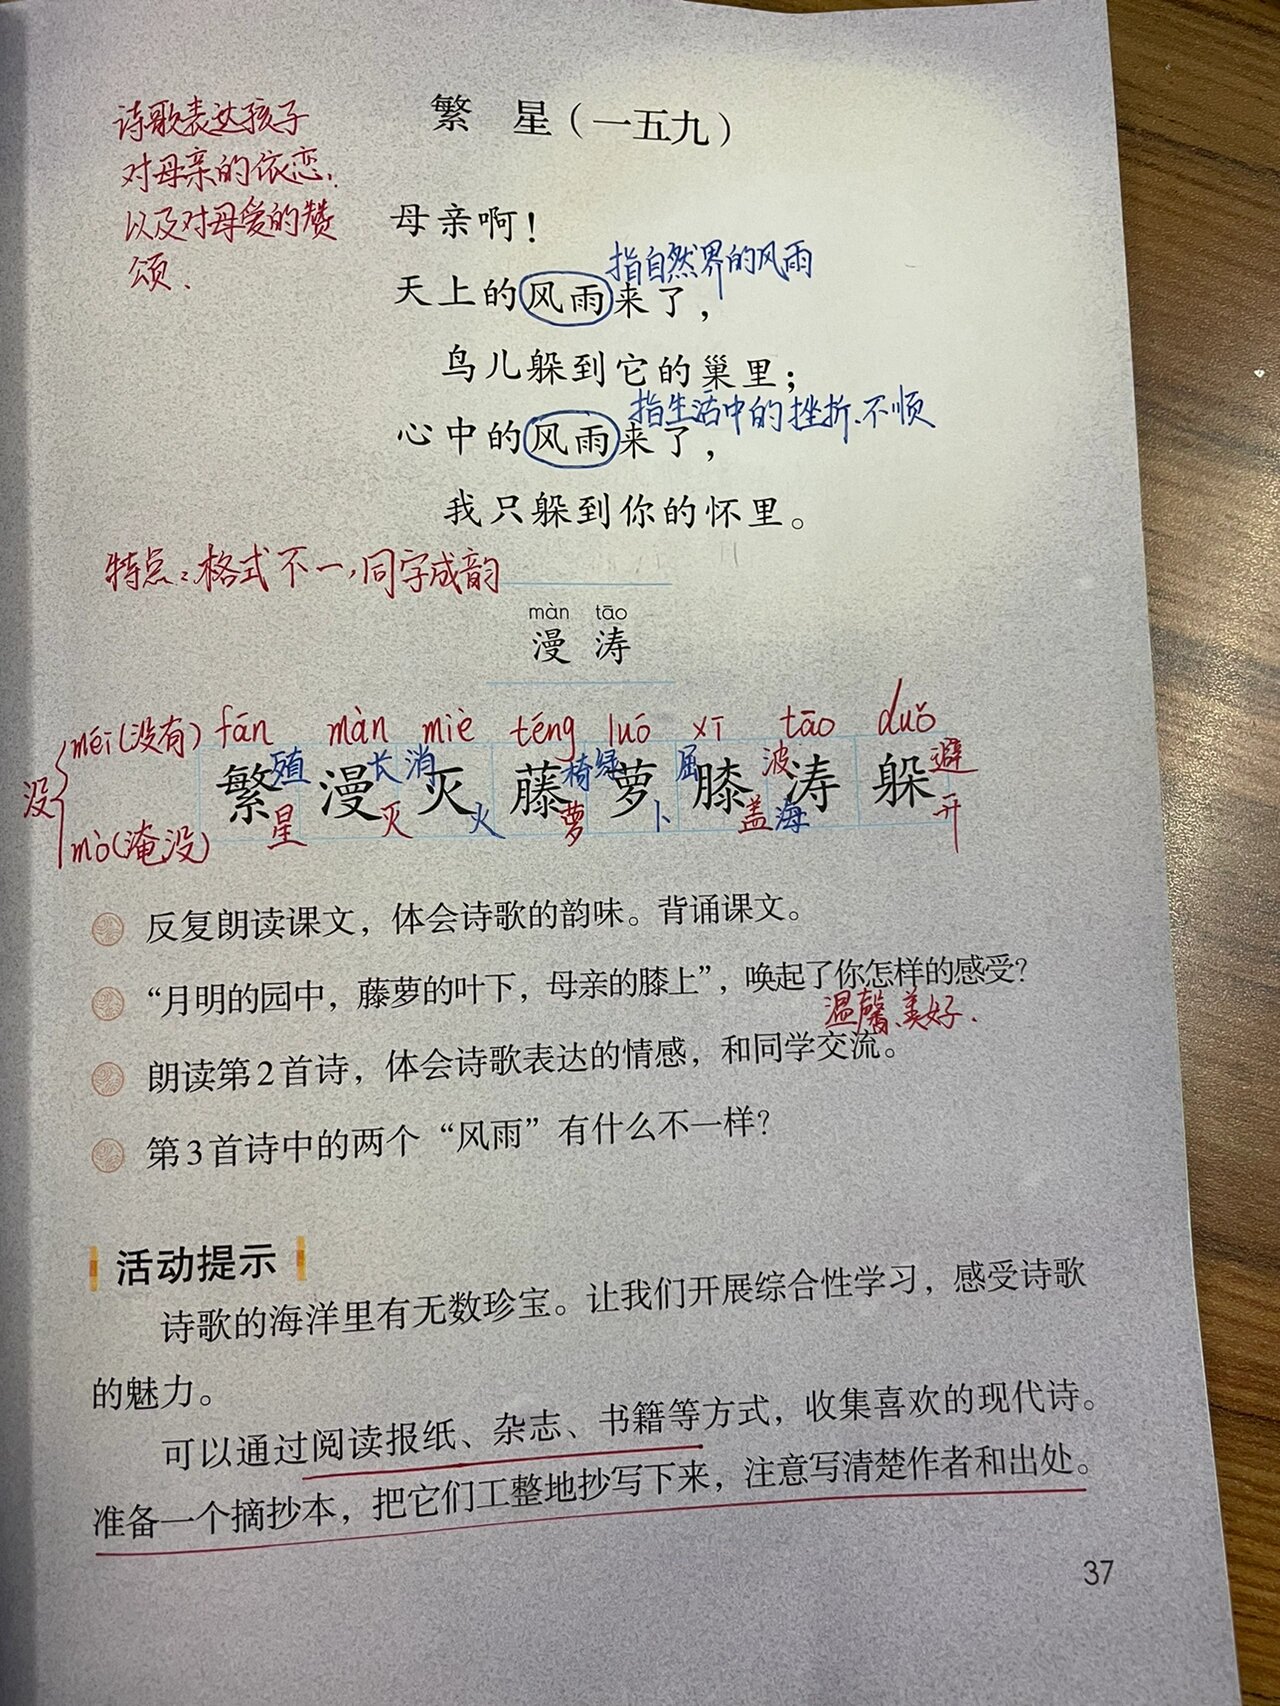 繁 星（一五九）
诗歌表达孩子
对母亲的依恋，
以及对母爱的赞
颂、
母亲啊！
指自然界的风雨
天上的风雨来了，
鸟儿躲到它的巢里；
指生活中的挫折、不顺
心中的风雨来了，
我只躲到你的怀里。
特点：格式不一，同字成韵
màn tāo
漫 涛
没 méi（没有） mò（淹没）
fán màn miè téng luó xī tāo duǒ
殖 长 消 椅 绿 屈 波 避
繁 漫 灭 藤 萝 膝 涛 躲
星 灭 火 萝 卜 盖 海 开
反复朗读课文，体会诗歌的韵味。背诵课文。
“月明的园中，藤萝的叶下，母亲的膝上”，唤起了你怎样的感受？
温馨、美好．
朗读第2首诗，体会诗歌表达的情感，和同学交流。
第3首诗中的两个“风雨”有什么不一样？
活动提示
诗歌的海洋里有无数珍宝。让我们开展综合性学习，感受诗歌
的魅力。
可以通过阅读报纸、杂志、书籍等方式，收集喜欢的现代诗。
准备一个摘抄本，把它们工整地抄写下来，注意写清楚作者和出处。
37